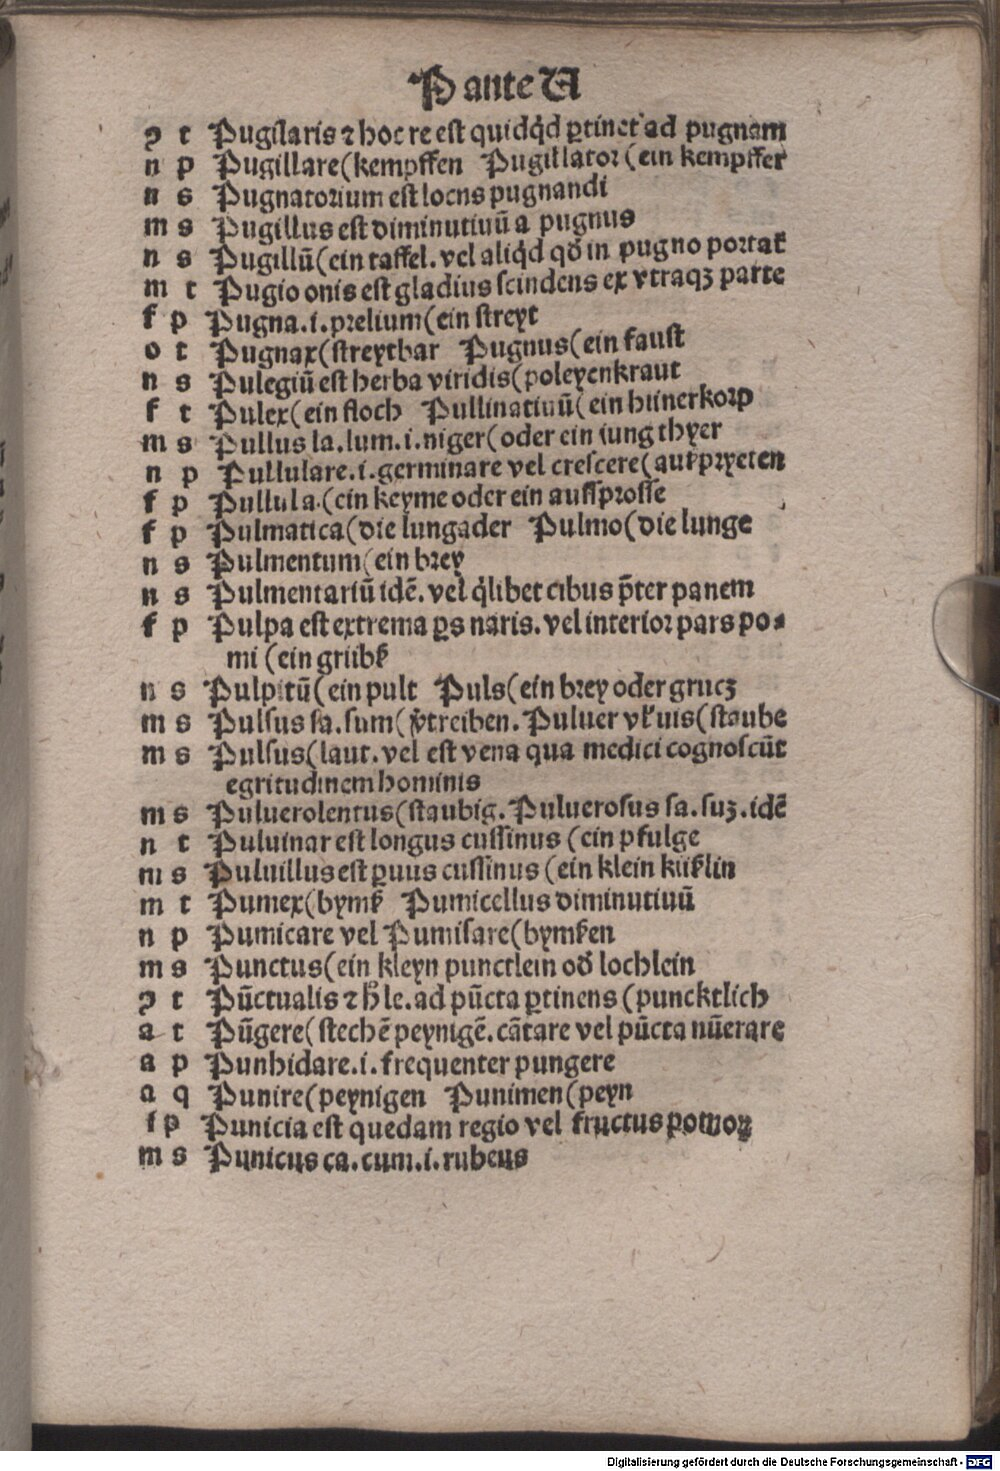 P ante U
ↄ t Pugilaris ⁊ hoc re est quidq̇d ꝑtinet ad pugnam
n p Pugillare(kempffen Pugillator(ein kempffer
n s Pugnatorium est locns pugnandi
m s Pugillus est diminutiuū a pugnus
n s Pugillū(ein taffel. vel aliq̇d qď in pugno portať
m t Pugio onis est gladius scindens ex vtraqꝫ parte
f p Pugna.i.prelium(ein streyt
o t Pugnax(streytbar Pugnus(ein faust
n s Pulegiū est herba viridis(poleyenkraut
f t Pulex(ein floch Pullinatiuū(ein hünerkorp
m s Pullus la.lum.i.niger(oder ein iung thyer
n p Pullulare.i.germinare vel crescere(auſspryeten
f p Pullula.(ein keyme oder ein auffsprosse
f p Pulmatica(die lungader Pulmo(die lunge
n s Pulmentum(ein brey
n s Pulmentariū idē. vel q̇libet cibus p̄ter panem
f p Pulpa est extrema ꝑs naris. vel interior pars po-
mi (ein grübſs
n s Pulpitū(ein pult Puls(ein brey oder grucz
m s Pulsus sa.sum(ṽtreiben. Puluer vľuis(staube
m s Pulsus(laut. vel est vena qua medici cognoscūt
egritudinem hominis
m s Puluerolentus(staubig. Puluerosus sa.suꝫ.idē
n t Puluinar est longus cussinus (ein pfulge
m s Puluillus est ꝑuus cussinus (ein klein küſslin
m t Pumex(bymſs Pumicellus diminutiuū
n p Pumicare vel Pumisare(bymſsen
m s Punctus(ein kleyn punctlein oď lochlein
ↄ t Pūctualis ⁊ h̊ le. ad pūcta ꝑtinens (puncktlich
a t Pūgere(stechē peynigē. cātare vel pūcta nūerare
a p Punhidare.i.frequenter pungere
a q Punire(peynigen Punimen(peyn
f p Punicia est quedam regio vel fructus pomoꝝ
m s Punicus ca.cum.i.rubeus
Digitalisierung gefördert durch die Deutsche Forschungsgemeinschaft - DFG